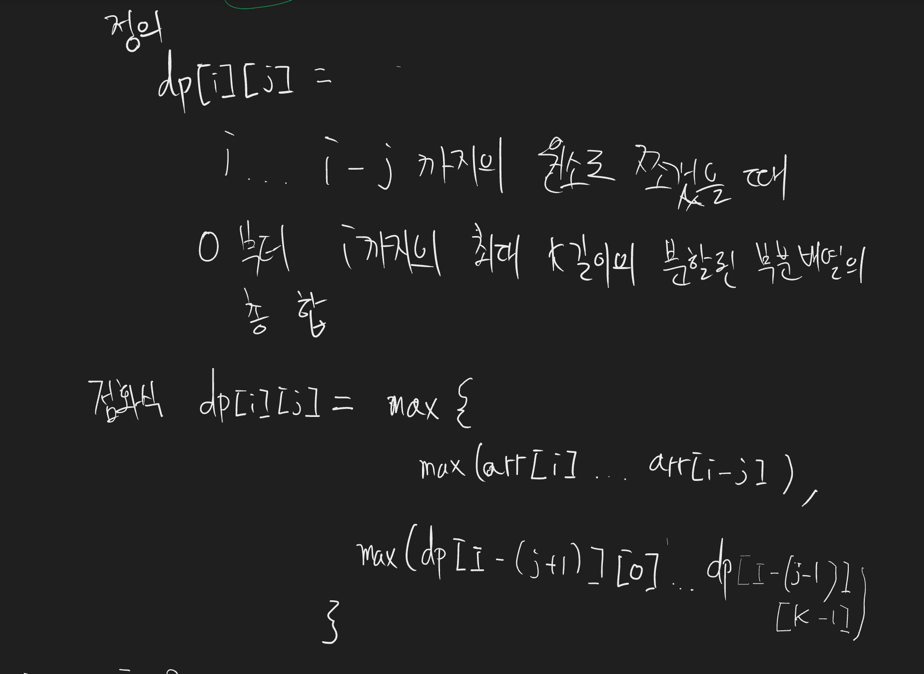 정의
dp[i][j] =
i ... i-j 까지의 원소로 쪼갰을 때
0 부터 i까지의 최대 k길이의 분할된 부분배열의
총 합
점화식 dp[i][j] = max {
max(arr[i] ... arr[i-j]),
max(dp[I-(j+1)][0] ... dp[I-(j-1)]
[K-1])
}